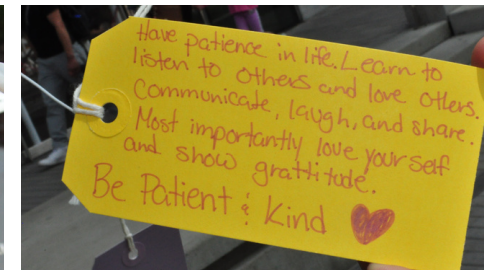 Have patience in life. Learn to
listen to others and love others.
Communicate, laugh, and share.
Most importantly love yourself
and show grattitude.
Be Patient & Kind